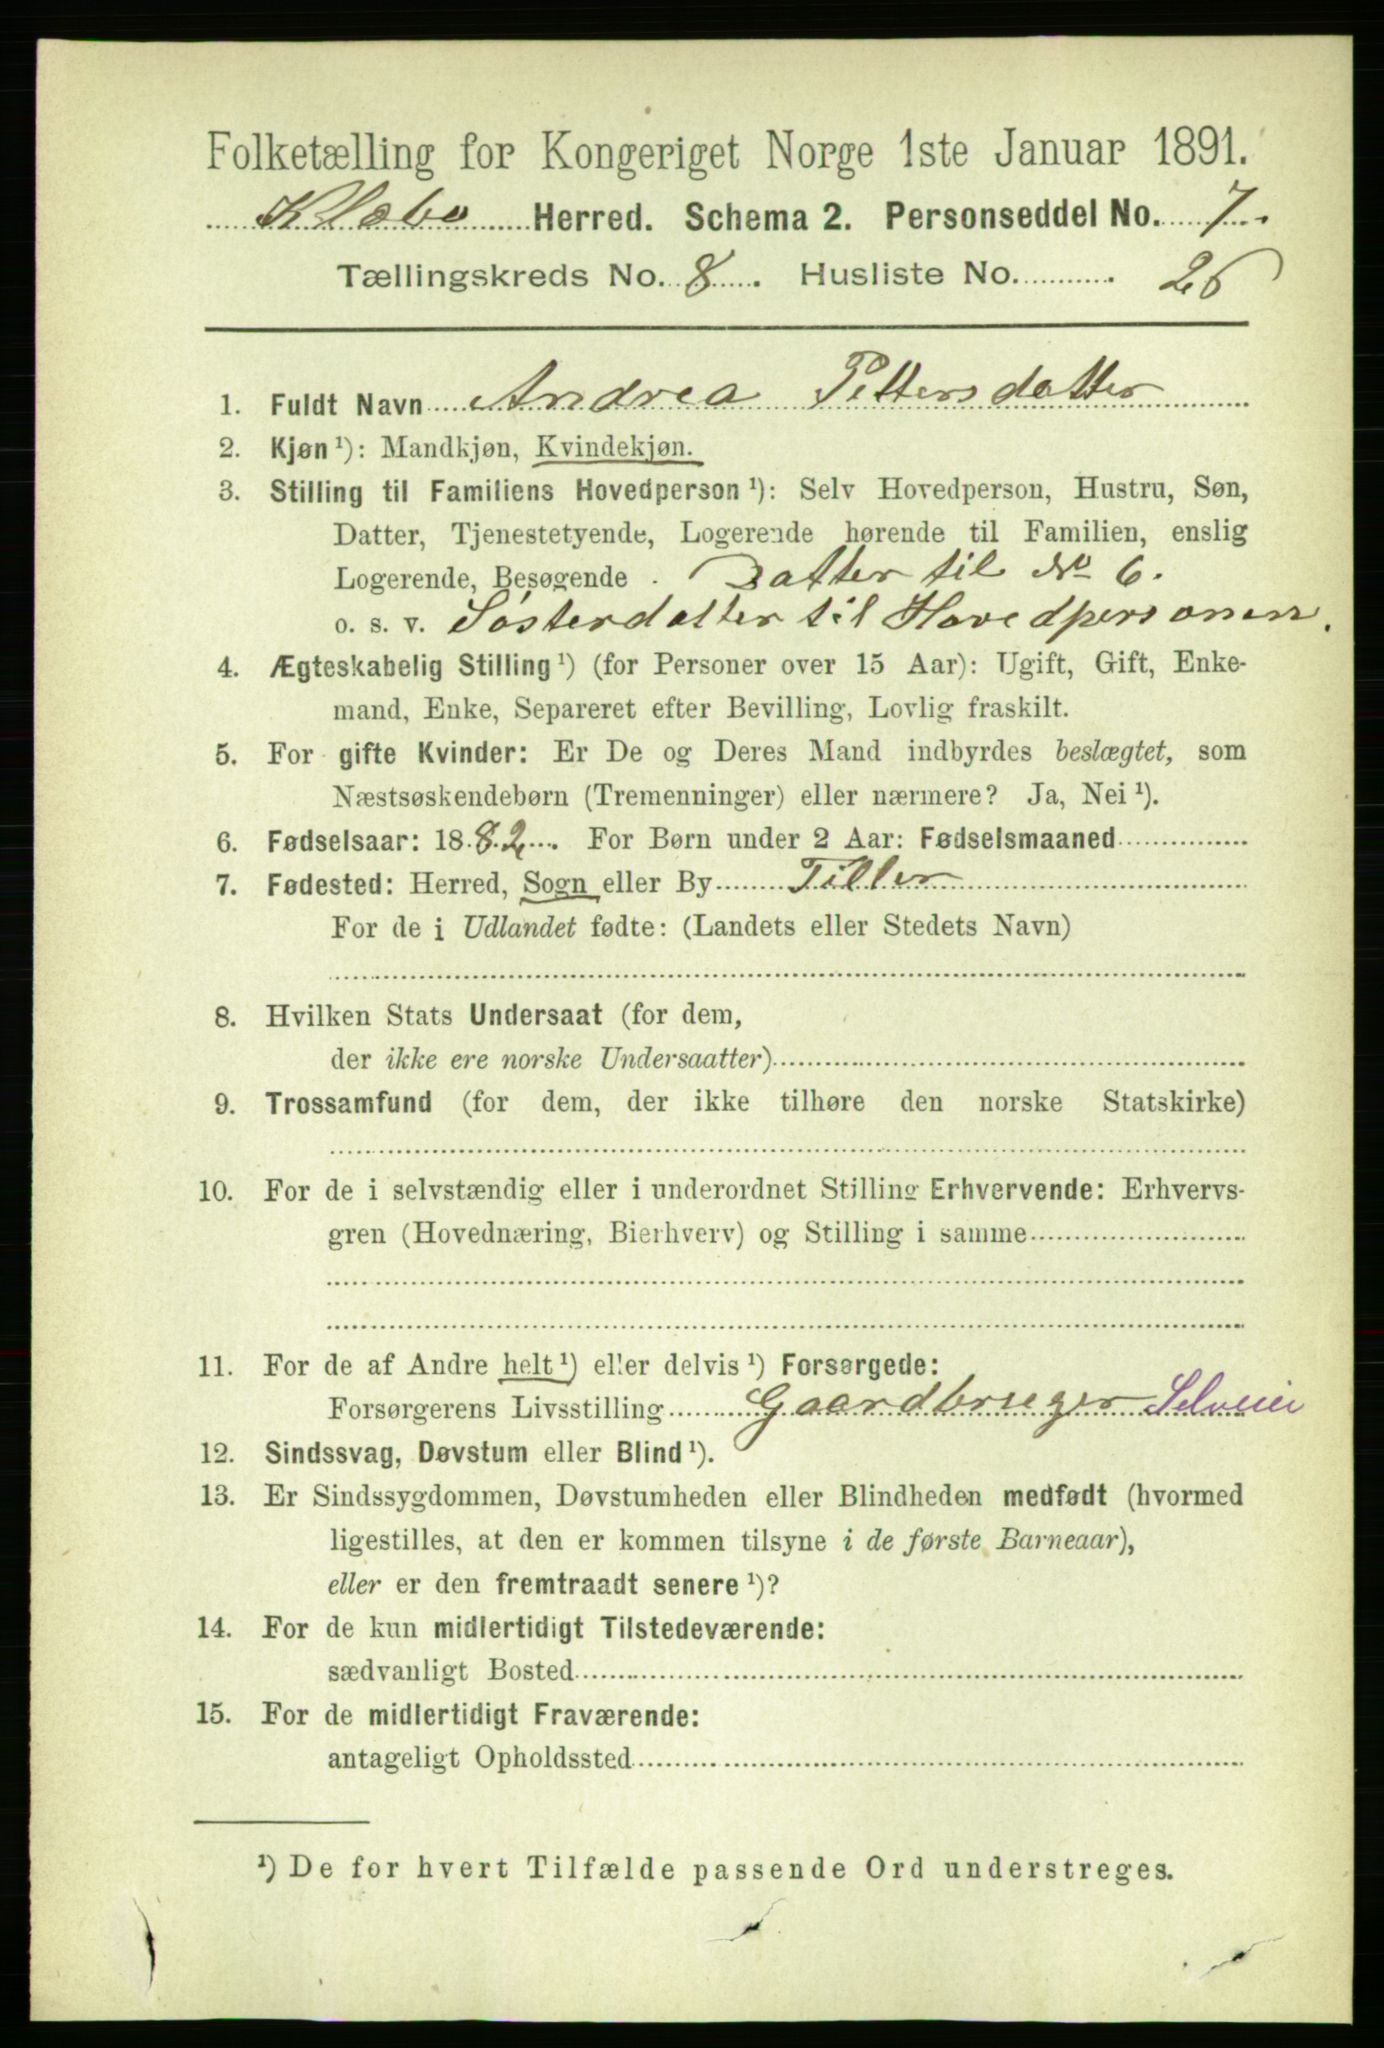 Folketælling for Kongeriget Norge 1ste Januar 1891.
Klæbo Herred. Schema 2. Personseddel No. 7.
Tællingskreds No. 8. Husliste No. 26
1. Fuldt Navn Andrea Pettersdatter
2. Kjøn ¹): Mandkjøn, Kvindekjøn.
3. Stilling til Familiens Hovedperson ¹): Selv Hovedperson, Hustru, Søn,
Datter, Tjenestetyende, Logerende hørende til Familien, enslig
Logerende, Besøgende . Datter til No 6.
o. s. v. Søsterdatter til Hovedpersonen.
4. Ægteskabelig Stilling ¹) (for Personer over 15 Aar): Ugift, Gift, Enke-
mand, Enke, Separeret efter Bevilling, Lovlig fraskilt.
5. For gifte Kvinder: Er De og Deres Mand indbyrdes beslægtet, som
Næstsøskendebørn (Tremenninger) eller nærmere? Ja, Nei ¹).
6. Fødselsaar: 1882. For Børn under 2 Aar: Fødselsmaaned
7. Fødested: Herred, Sogn eller By Tiller
For de i Udlandet fødte: (Landets eller Stedets Navn)
8. Hvilken Stats Undersaat (for dem,
der ikke ere norske Undersaatter)
9. Trossamfund (for dem, der ikke tilhøre den norske Statskirke)
10. For de i selvstændig eller i underordnet Stilling Erhvervende: Erhvervs-
gren (Hovednæring, Bierhverv) og Stilling i samme
11. For de af Andre helt ¹) eller delvis ¹) Forsørgede:
Forsørgerens Livsstilling Gaardbruger Selveier
12. Sindssvag, Døvstum eller Blind ¹).
13. Er Sindssygdommen, Døvstumheden eller Blindheden medfødt (hvormed
ligestilles, at den er kommen tilsyne i de første Barneaar),
eller er den fremtraadt senere ¹)?
14. For de kun midlertidigt Tilstedeværende:
sædvanligt Bosted
15. For de midlertidigt Fraværende:
antageligt Opholdssted
¹) De for hvert Tilfælde passende Ord understreges.